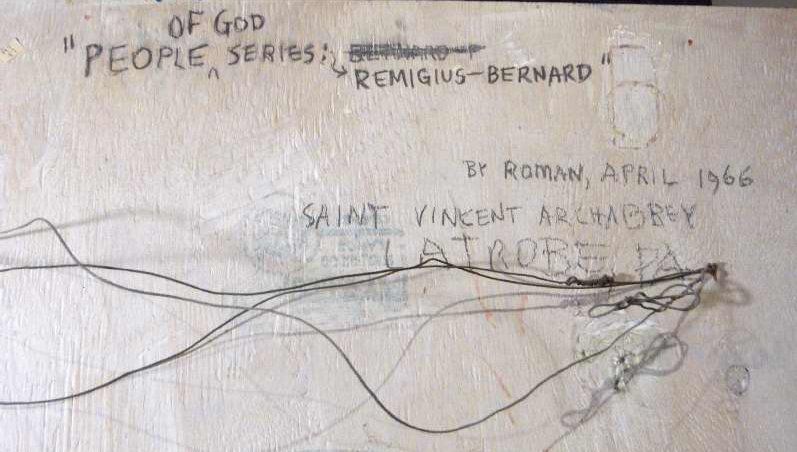 OF GOD
"PEOPLE ^ SERIES:
REMIGIUS-BERNARD"
BY ROMAN, APRIL 1966
SAINT VINCENT ARCHABBEY
LATROBE PA